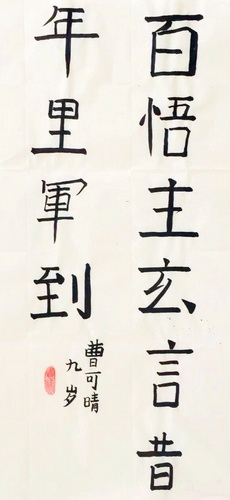 百悟主玄言昔
年里軍到
曹可晴
九岁